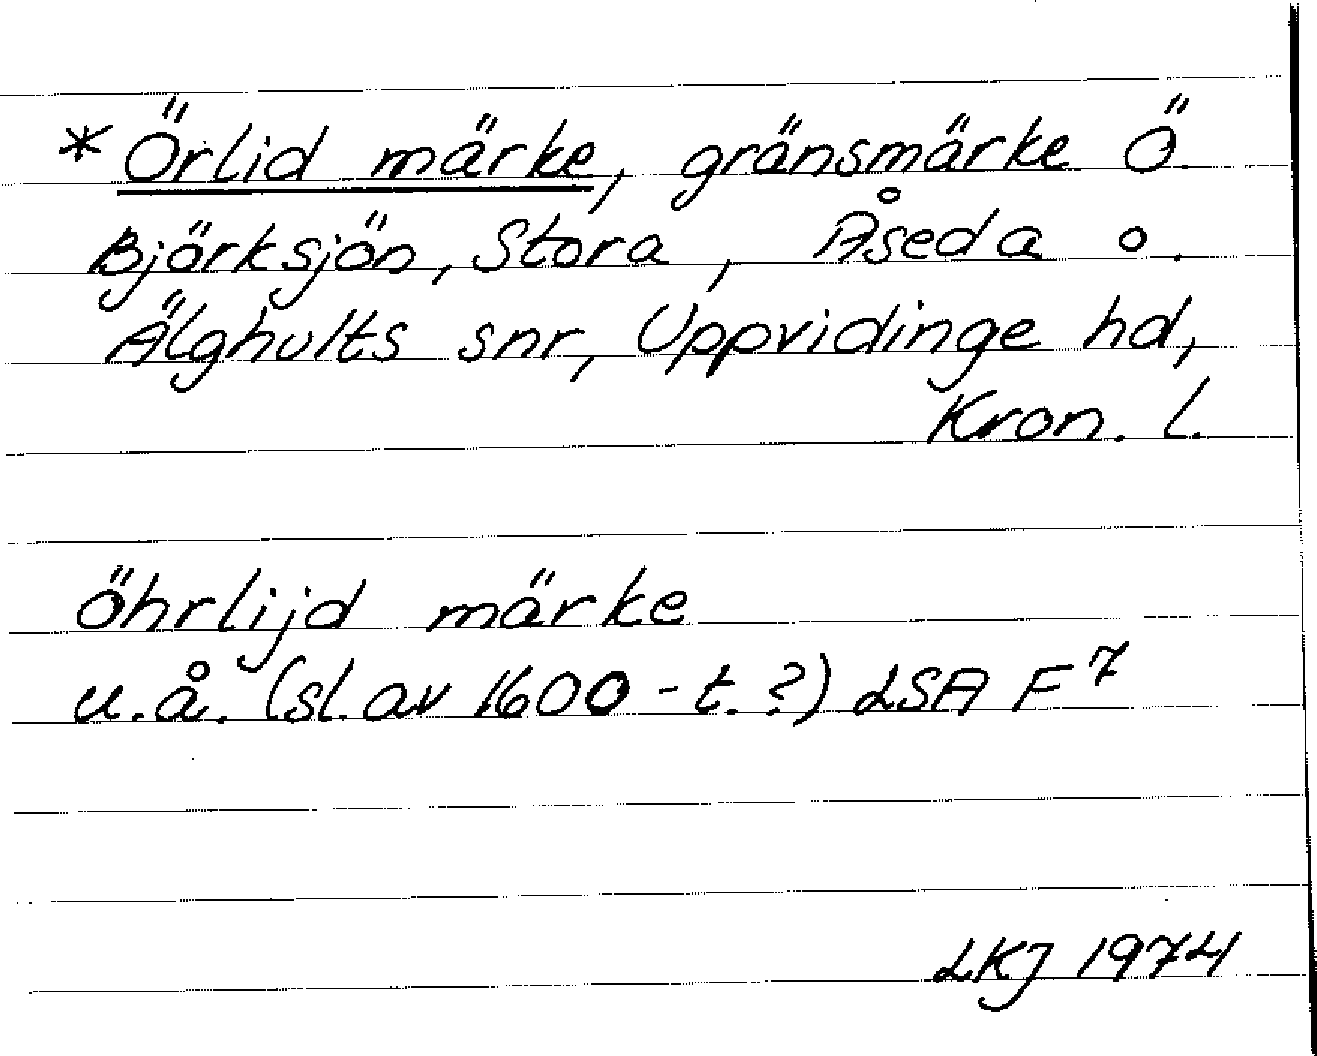 * Örlid märke, gränsmärke Ö
Björksjön, Stora, Åseda o.
Älghults snr, Uppvidinge hd,
Kron. l.
öhrlijd märke
u.å. (sl. av 1600-t.?) LSA F7
LKJ 1974